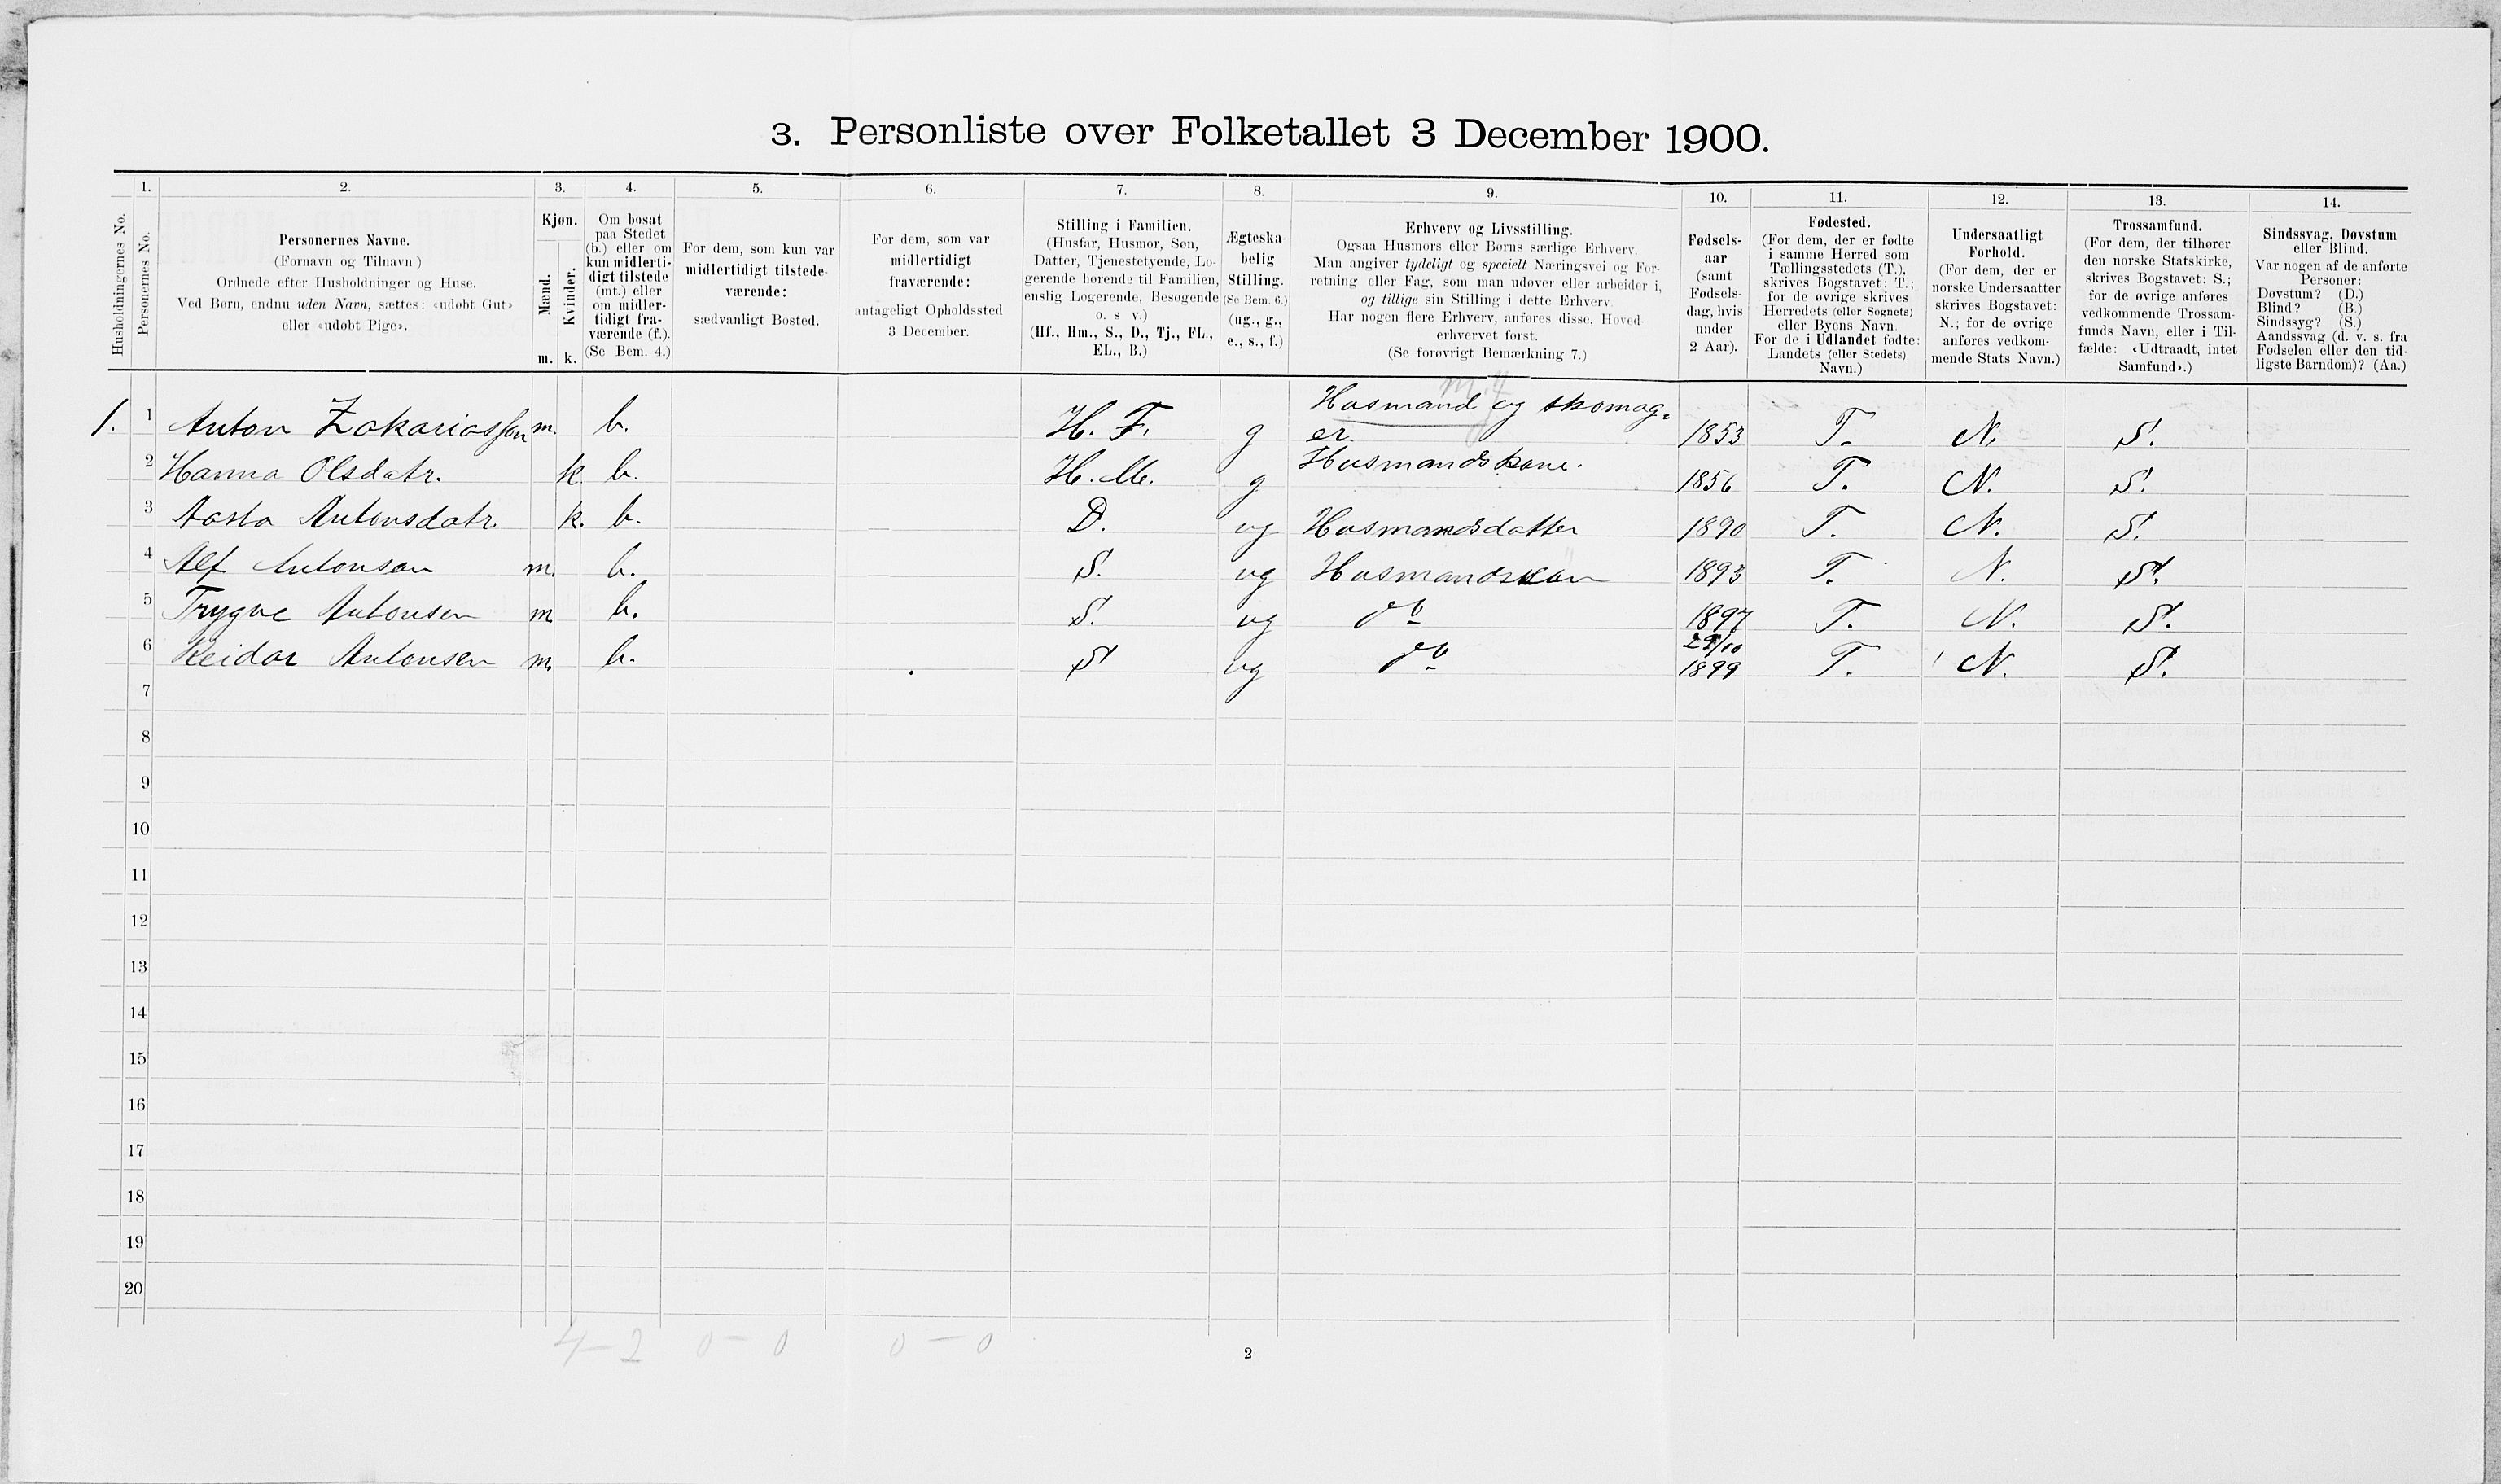 3. Personliste over Folketallet 3 December 1900.
1. 2. 3. 4. 5. 6. 7. 8. 9. 10. 11. 12. 13. 14.
Husholdningernes No.
Personernes No.
Personernes Navne.
(Fornavn og Tilnavn.)
Ordnede efter Husholdninger og Huse.
Ved Børn, endnu uden Navn, sættes: «udøbt Gut»
eller «udøbt Pige».
Kjøn.
Mænd.
Kvinder.
m. k.
Om bosat
paa Stedet
(b.) eller om
kun midlerti-
digt tilstede
(mt.) eller
om midler-
tidigt fra-
værende (f.).
(Se Bem. 4.)
For dem, som kun var
midlertidigt tilstede-
værende:
sædvanligt Bosted.
For dem, som var
midlertidigt
fraværende:
antageligt Opholdssted
3 December.
Stilling i Familien.
(Husfar, Husmor, Søn,
Datter, Tjenestetyende, Lo-
gerende hørende til Familien,
enslig Logerende, Besøgende
o. s v.)
(Hf., Hm., S., D., Tj., FL.,
EL., B.)
Ægteska-
belig
Stilling.
(Se Bem. 6.)
(ug., g.,
e., s., f.)
Erhverv og Livsstilling.
Ogsaa Husmors eller Børns særlige Erhverv.
Man angiver tydeligt og specielt Næringsvei og For-
retning eller Fag, som man udøver eller arbeider i,
og tillige sin Stilling i dette Erhverv.
Har nogen flere Erhverv, anføres disse, Hoved-
erhvervet først.
(Se forøvrigt Bemærkning 7.)
Fødsels-
aar
(samt
Fødsels-
dag, hvis
under
2 Aar).
Fødested.
(For dem, der er fødte
i samme Herred som
Tællingsstedets (T.),
skrives Bogstavet: T.;
for de øvrige skrives
Herredets (eller Sognets)
eller Byens Navn.
For de i Udlandet fødte:
Landets (eller Stedets)
Navn.)
Undersaatligt
Forhold.
(For dem, der er
norske Undersaatter
skrives Bogstavet:
N.; for de øvrige
anføres vedkom-
mende Stats Navn.)
Trossamfund.
(For dem, der tilhører
den norske Statskirke,
skrives Bogstavet: S.;
for de øvrige anføres
vedkommende Trossam-
funds Navn, eller i Til-
fælde: «Udtraadt, intet
Samfund».)
Sindssvag, Døvstum
eller Blind.
Var nogen af de anførte
Personer:
Døvstum? (D.)
Blind? (B.)
Sindssyg? (S.)
Aandssvag (d. v. s. fra
Fødselen eller den tid-
ligste Barndom)? (Aa.)
1. 1 Anton Zakariassen m. b. H. F. g Husmand og skomag=
er 1853 T. N. S.
2 Hanna Olsdatr. k. b. H. M. g Husmandskone. 1856 T. N. S.
3 Aasta Antonsdatr. k. b. D. ug Husmandsdatter 1890 T. N. S.
4 Alf Antonsen m. b. S. ug Husmandssøn 1893 T. N. S.
5 Trygve Antonsen m b. S. ug do 1897 T. N. S.
6 Reidar Antonsen m. b. S ug do 1899 T. N. S.
7
8
9
10
11
12
13
14
15
16
17
18
19
20
4-2 0-0 0-0
2